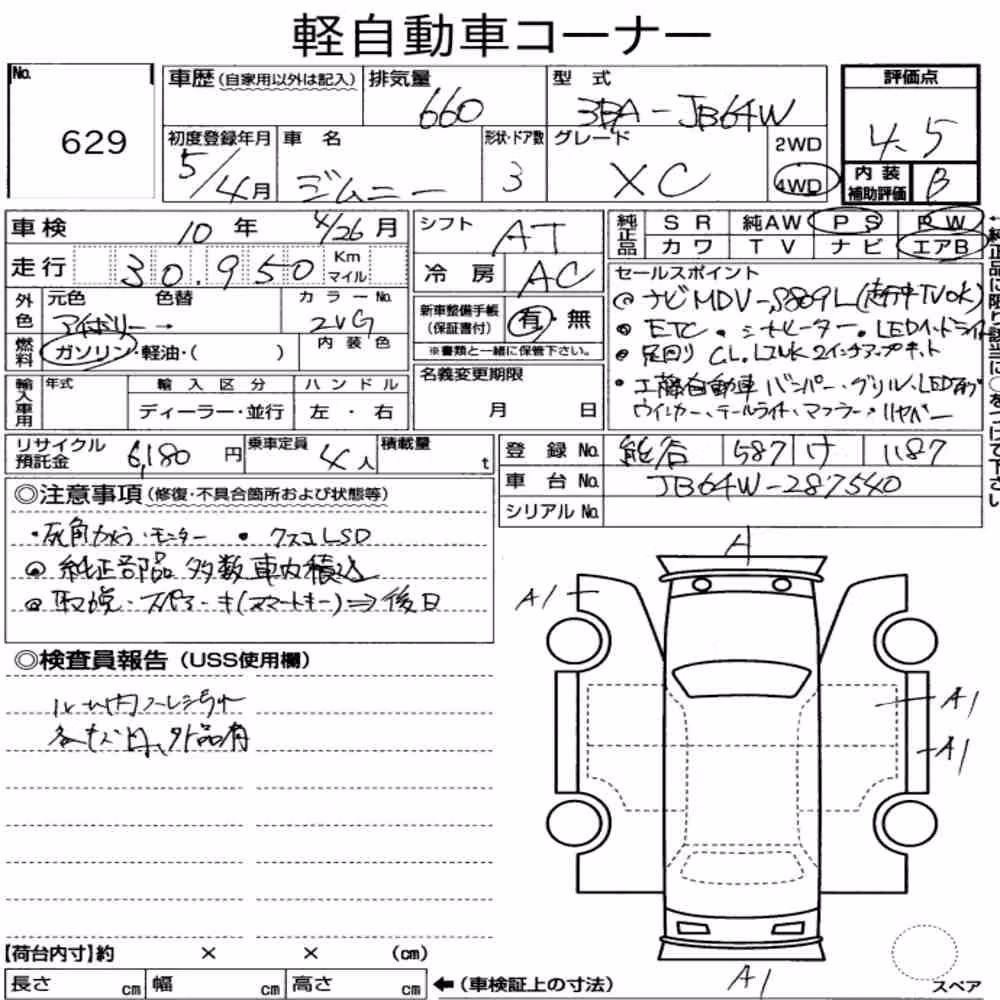 軽自動車コーナー
No. 629
車歴 (自家用以外は記入) 排気量 660 型式 3BA-JB64W
初度登録年月 5/4月 車名 ジムニー 形状・ドア数 3 グレード XC 2WD 4WD
評価点 4.5
内装補助評価 B
車検 10年 4/26月
走行 30,950 Km マイル
外色 元色 アイボリー→ 色替 カラーNo. ZVG
燃料 ガソリン・軽油・( ) 内装色
輸入車用 年式 輸入区分 ディーラー・並行 ハンドル 左・右
リサイクル預託金 6,180円 乗車定員 4人 積載量 t
シフト AT
冷房 AC
新車整備手帳 (保証書付) 有・無
※書類と一緒に保管下さい。
名義変更期限 月 日
純正品 SR 純AW PS PW
カワ TV ナビ エアB
←純正品に限り該当に○をつけて下さい
セールスポイント
ナビMDV-S809L(走行中TVOK)
・ETC ・シートヒーター・LEDヘッドライト
・足回り CL.LINK 2インチアップキット
・工藤自動車 バンパー・グリル・LED
ウインカー・テールライト・マフラー・リヤバンパー
登録No. 熊谷 587 け 1187
車台No. JB64W-287540
シリアルNo.
◎注意事項 (修復・不具合箇所および状態等)
・死角カメラ・モニター ・クスコLSD
純正部品 多数 車内積込
取説・スペアキー(スマートキー)⇒後日
◎検査員報告 (USS使用欄)
ルーム内
外品有
【荷台内寸】約 × × (cm)
長さ cm 幅 cm 高さ cm ←(車検証上の寸法)
A
A1
A1
A1
A1
スペア